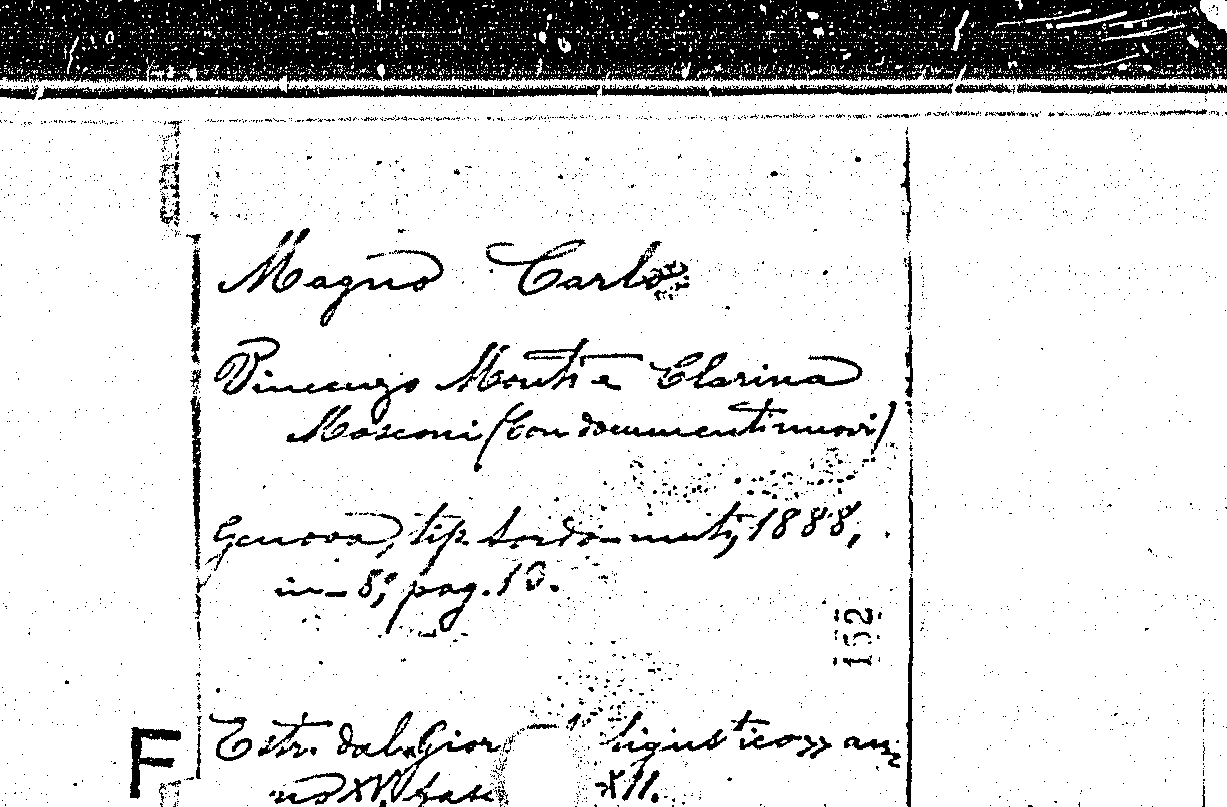 Magno Carlo
Vincenzo Monti e Clarina
Mosconi (Con documenti nuovi)
Genova, tip. Sordo-muti, 1888,
in-8°, pag. 10.
152
Estr. dal "Gior ligustico" an-
no XV, fasc XII.
F